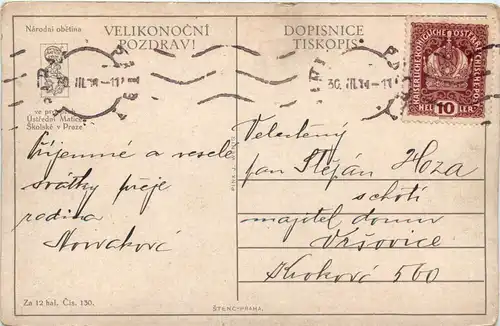 Národní obětina
VELIKONOČNÍ
POZDRAV!
DOPISNICE
TISKOPIS
ve prospěch
Ústřední Matice
Školské v Praze
30. III.
-11
KAISERLICHE KÖNIGLICHE ÖSTERREICHISCHE POST
HEL 10 LER
Příjemné a veselé
svátky přeje
rodina
Nováková
Velectěný
pan Štěpán Hoza
majitel domu
Vršovice
Krokova 560
Za 12 hal. Čís. 150.
ŠTENC-PRAHA.